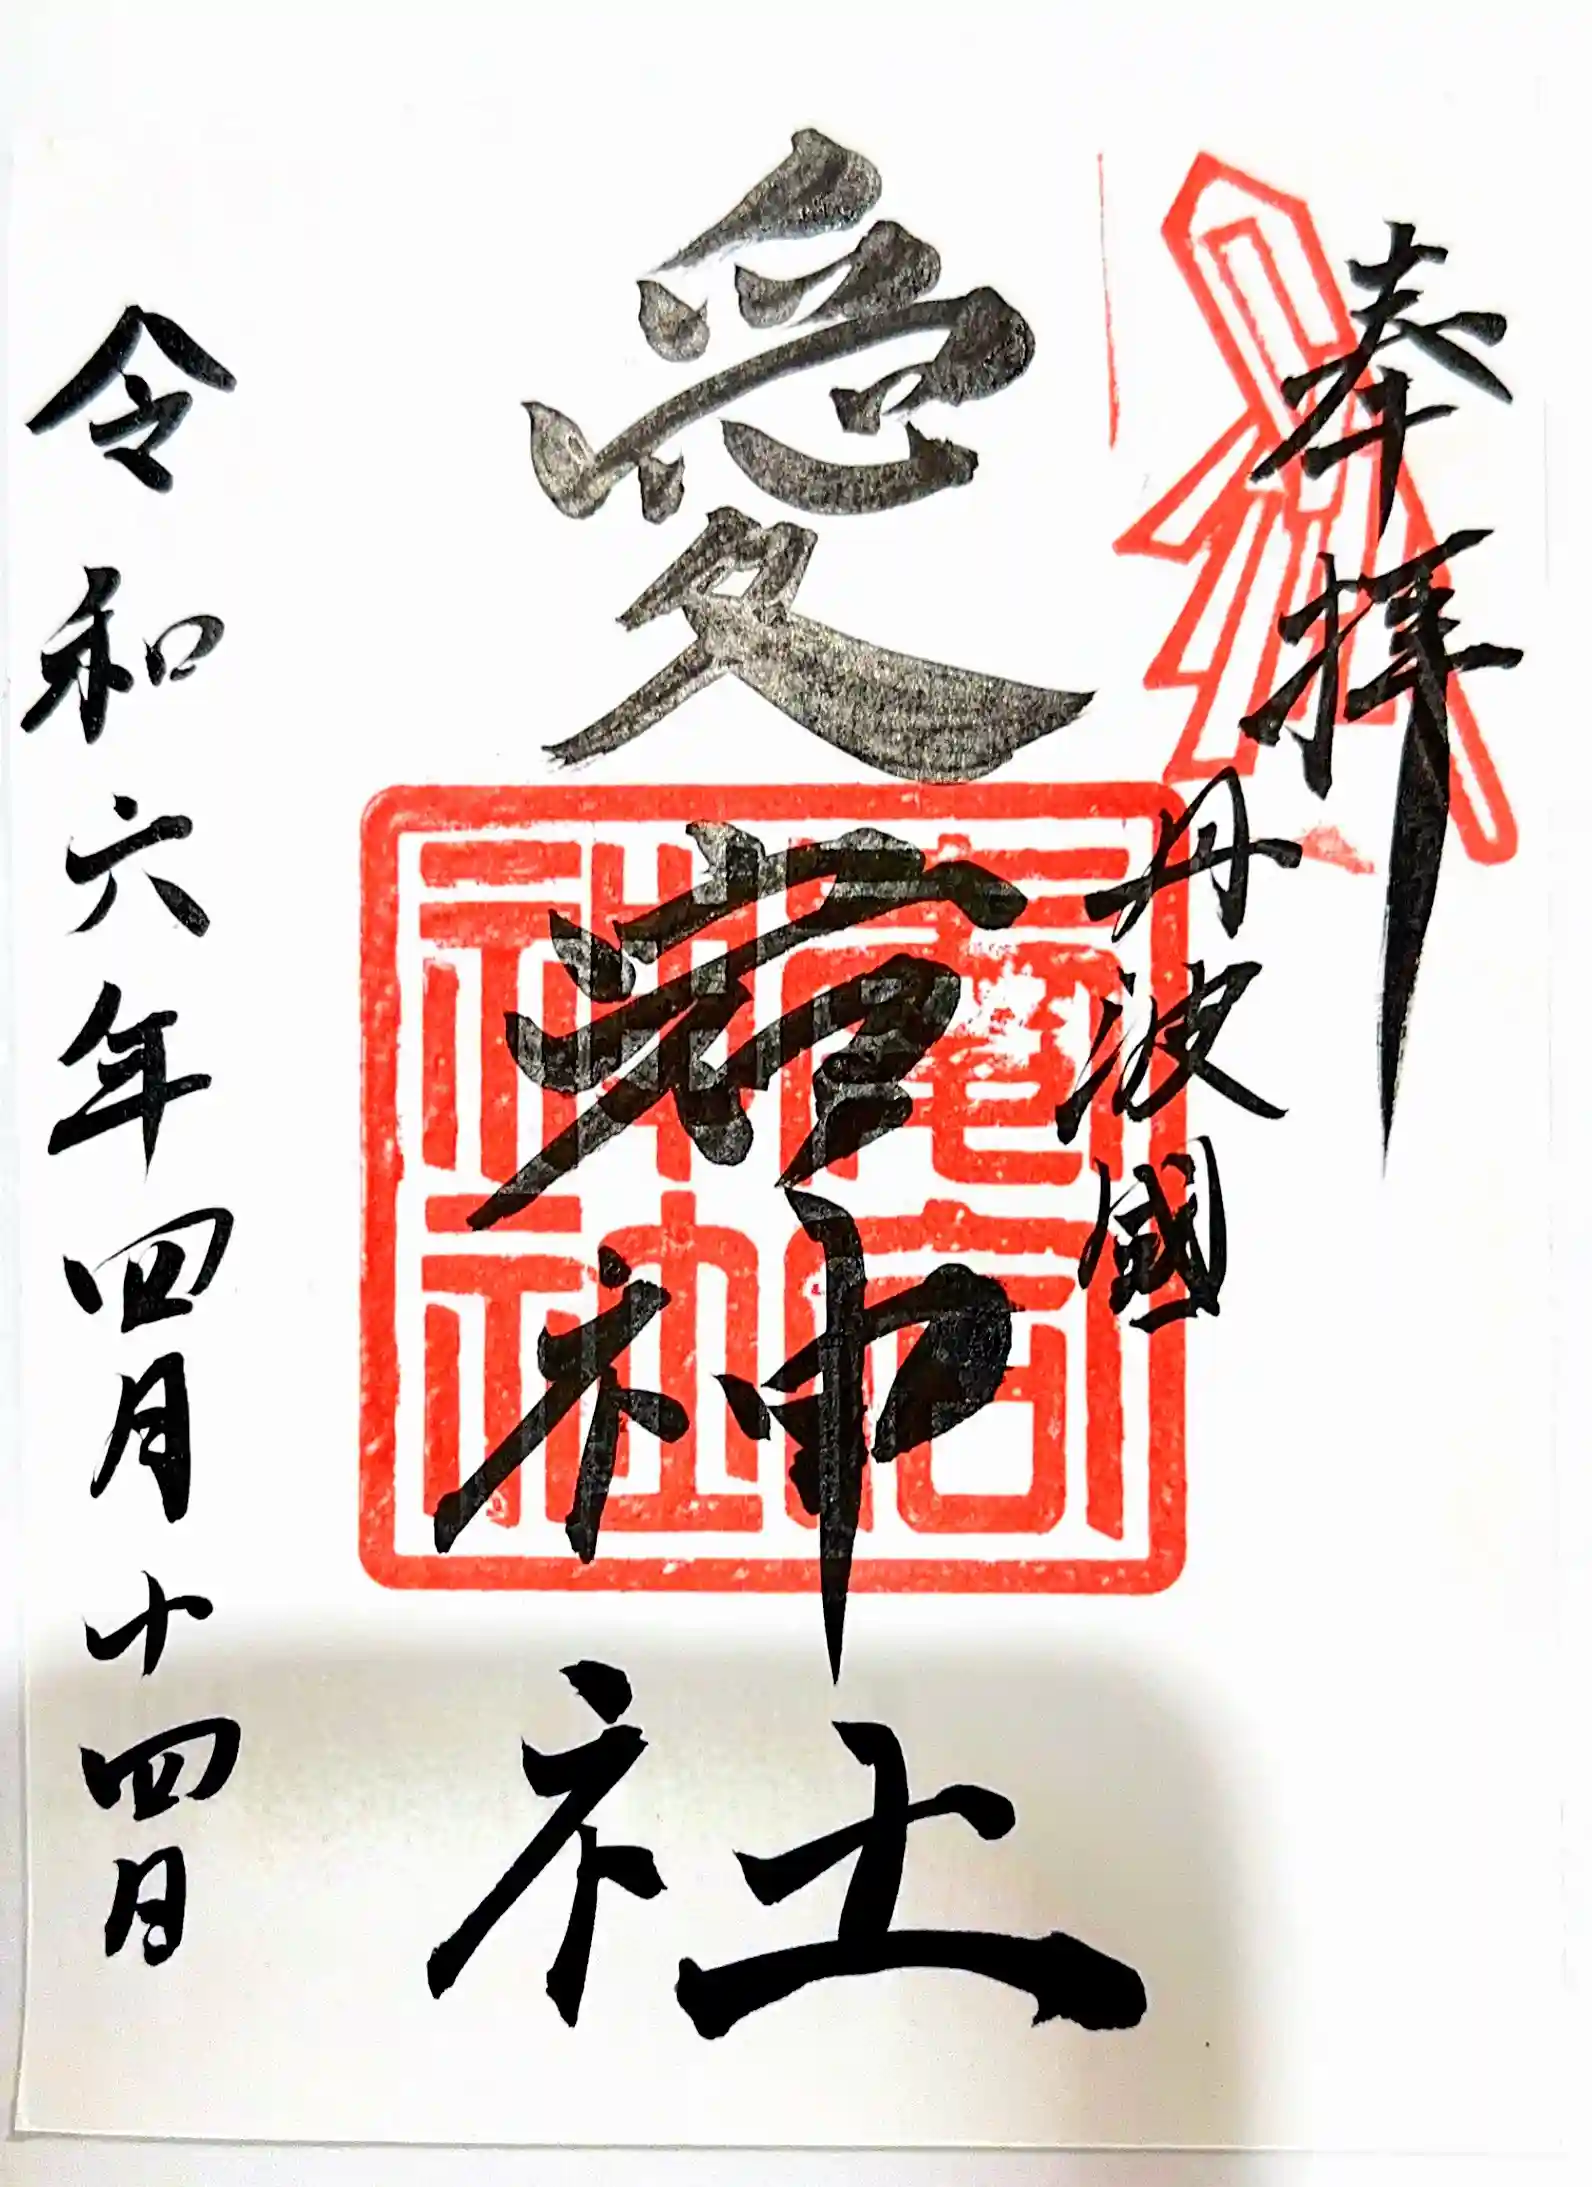 奉拝
丹波國
愛宕神社
令和六年四月十四日
愛宕
神社